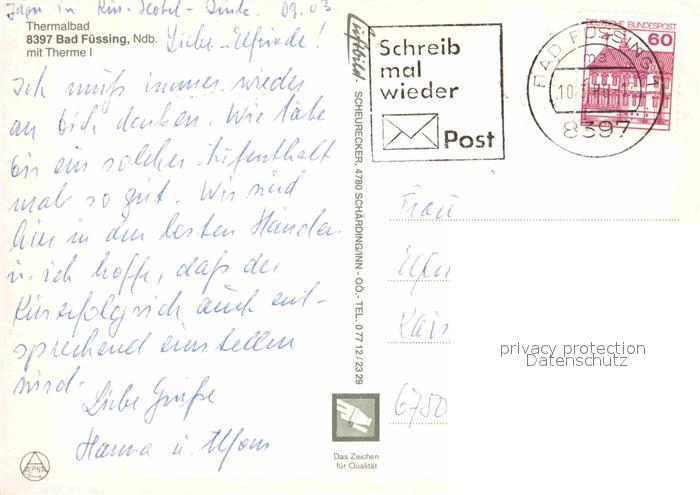 Thermalbad
8397 Bad Füssing, Ndb.
mit Therme I
Liebe Elfriede!
Ich muß immer wieder
an Dich denken. Wie täte
Dir ein solcher Aufenthalt
mal so gut. Wir sind
hier in den besten Händen
u. ich hoffe, daß der
Kurerfolg sich auch ent-
sprechend einstellen
wird.
Liebe Grüße
Hanna u. Alfons
ALPINA
Luftbild
SCHEURECKER, 4780 SCHÄRDING/INN - OÖ., - TEL. 0 77 12 / 23 29
Das Zeichen
für Qualität
Schreib
mal
wieder
Post
BAD FÜSSING
ma
8397
DEUTSCHE BUNDESPOST
60
Frau
6750
privacy protection
Datenschutz